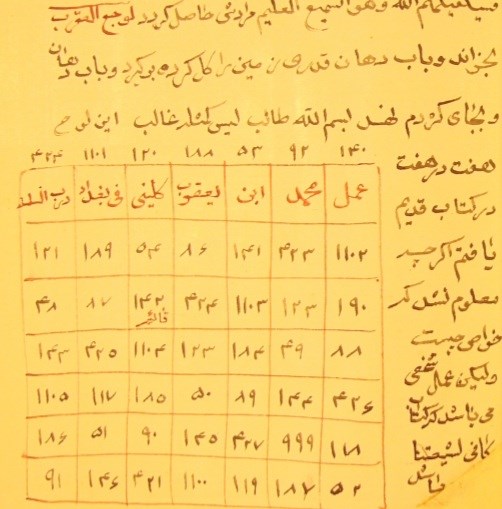 فسیکفیکهم الله وهو السمیع العلیم مرادش حاصل کردد لوجع العقرب
بخواند وباب دهان قدری زمین را کل کرده بو کیرد وباب دهان
و بجای کژدم نهد بسم الله طالب لیس کمثله غالب این لوح
هفت در هفت
در کتاب قدیم
یافتم اکر چه
معلوم نشد که
خواص چیست
ولیکن عمل شخصی
می باشد که کتاب
کافی
باشد
۱۴۰ ۹۲ ۵۳ ۱۸۸ ۱۲۰ ۱۱۰۱ ۴۲۴
عمل محمد ابن یعقوب کلینی فی بغداد درب السلسله
۱۱۰۲ ۴۲۳ ۱۴۱ ۸۶ ۵۴ ۱۸۹ ۱۲۱
۱۹۰ ۱۲۳ ۱۱۰۳ ۴۲۴ ۱۴۲ ۸۷ ۴۸
۸۸ ۴۹ ۱۸۴ ۱۲۳ ۱۱۰۴ ۴۲۵ ۱۴۳
۴۲۶ ۱۴۴ ۸۹ ۵۰ ۱۸۵ ۱۱۷ ۱۱۰۵
۱۱۸ ۹۹۹ ۴۲۷ ۱۴۵ ۹۰ ۵۱ ۱۸۶
۵۲ ۱۸۷ ۱۱۹ ۱۱۰۰ ۴۲۱ ۱۴۶ ۹۱